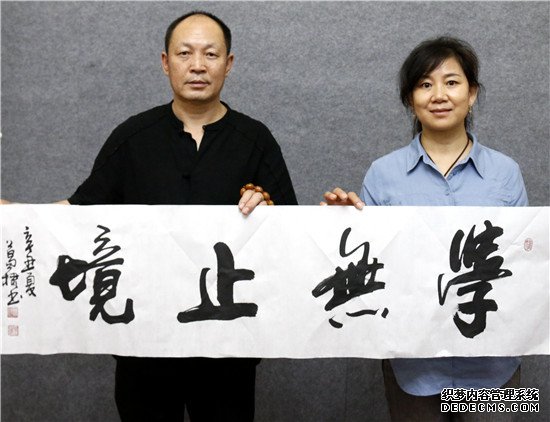 學無止境
辛丑夏
葛𣘗书
织梦内容管理系统
DEDECMS.COM